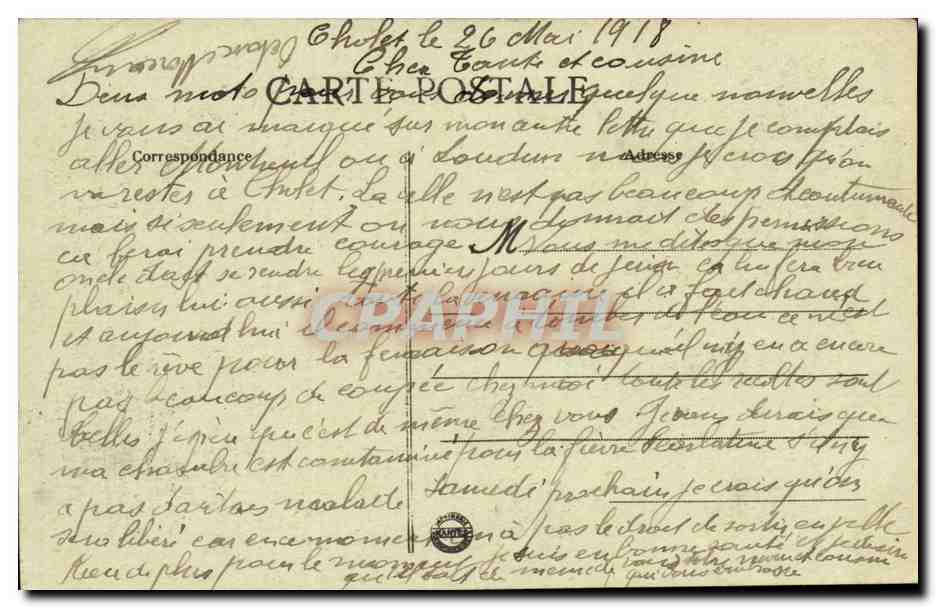 Cholet le 26 Mai 1918
Cher Tante et cousine
CARTE POSTALE
Deux mots pour vous donner quelque nouvelles
je vous ai marqué sur mon autre lettre que je comptais
Correspondance
Adresse
aller Montreuil ou à Loudun mais je crois qu'on
va rester à Cholet. La ville n'est pas beaucoup
mais si seulement on nous donnait des permissions
ça ferai prendre courage M vous me dites que mon
oncle doit se rendre les premier jours de juin ça lui fera bien
plaisir lui aussi toute la semaine il a fait chaud
et aujourd'hui il commence à tomber de l'eau ce n'est
pas le rêve pour la fenaison quoiqu'il n'y en a encore
pas beaucoup de coupée chez moi toute les récoltes sont
belles j'espère qu'est de même chez vous Je vous dirais que
ma chambre est contaminé pour la fièvre scarlatine s'il n'y
a pas d'autres malade samedi prochain je crois qu'on
sera libéré car en ce moment on à pas le droit de sortir en ville
Rien de plus pour le moment je suis en bonne santé et je désire
qu'il soit de même de vous votre neveu et cousin
qui vous embrasse
CPAPHIL